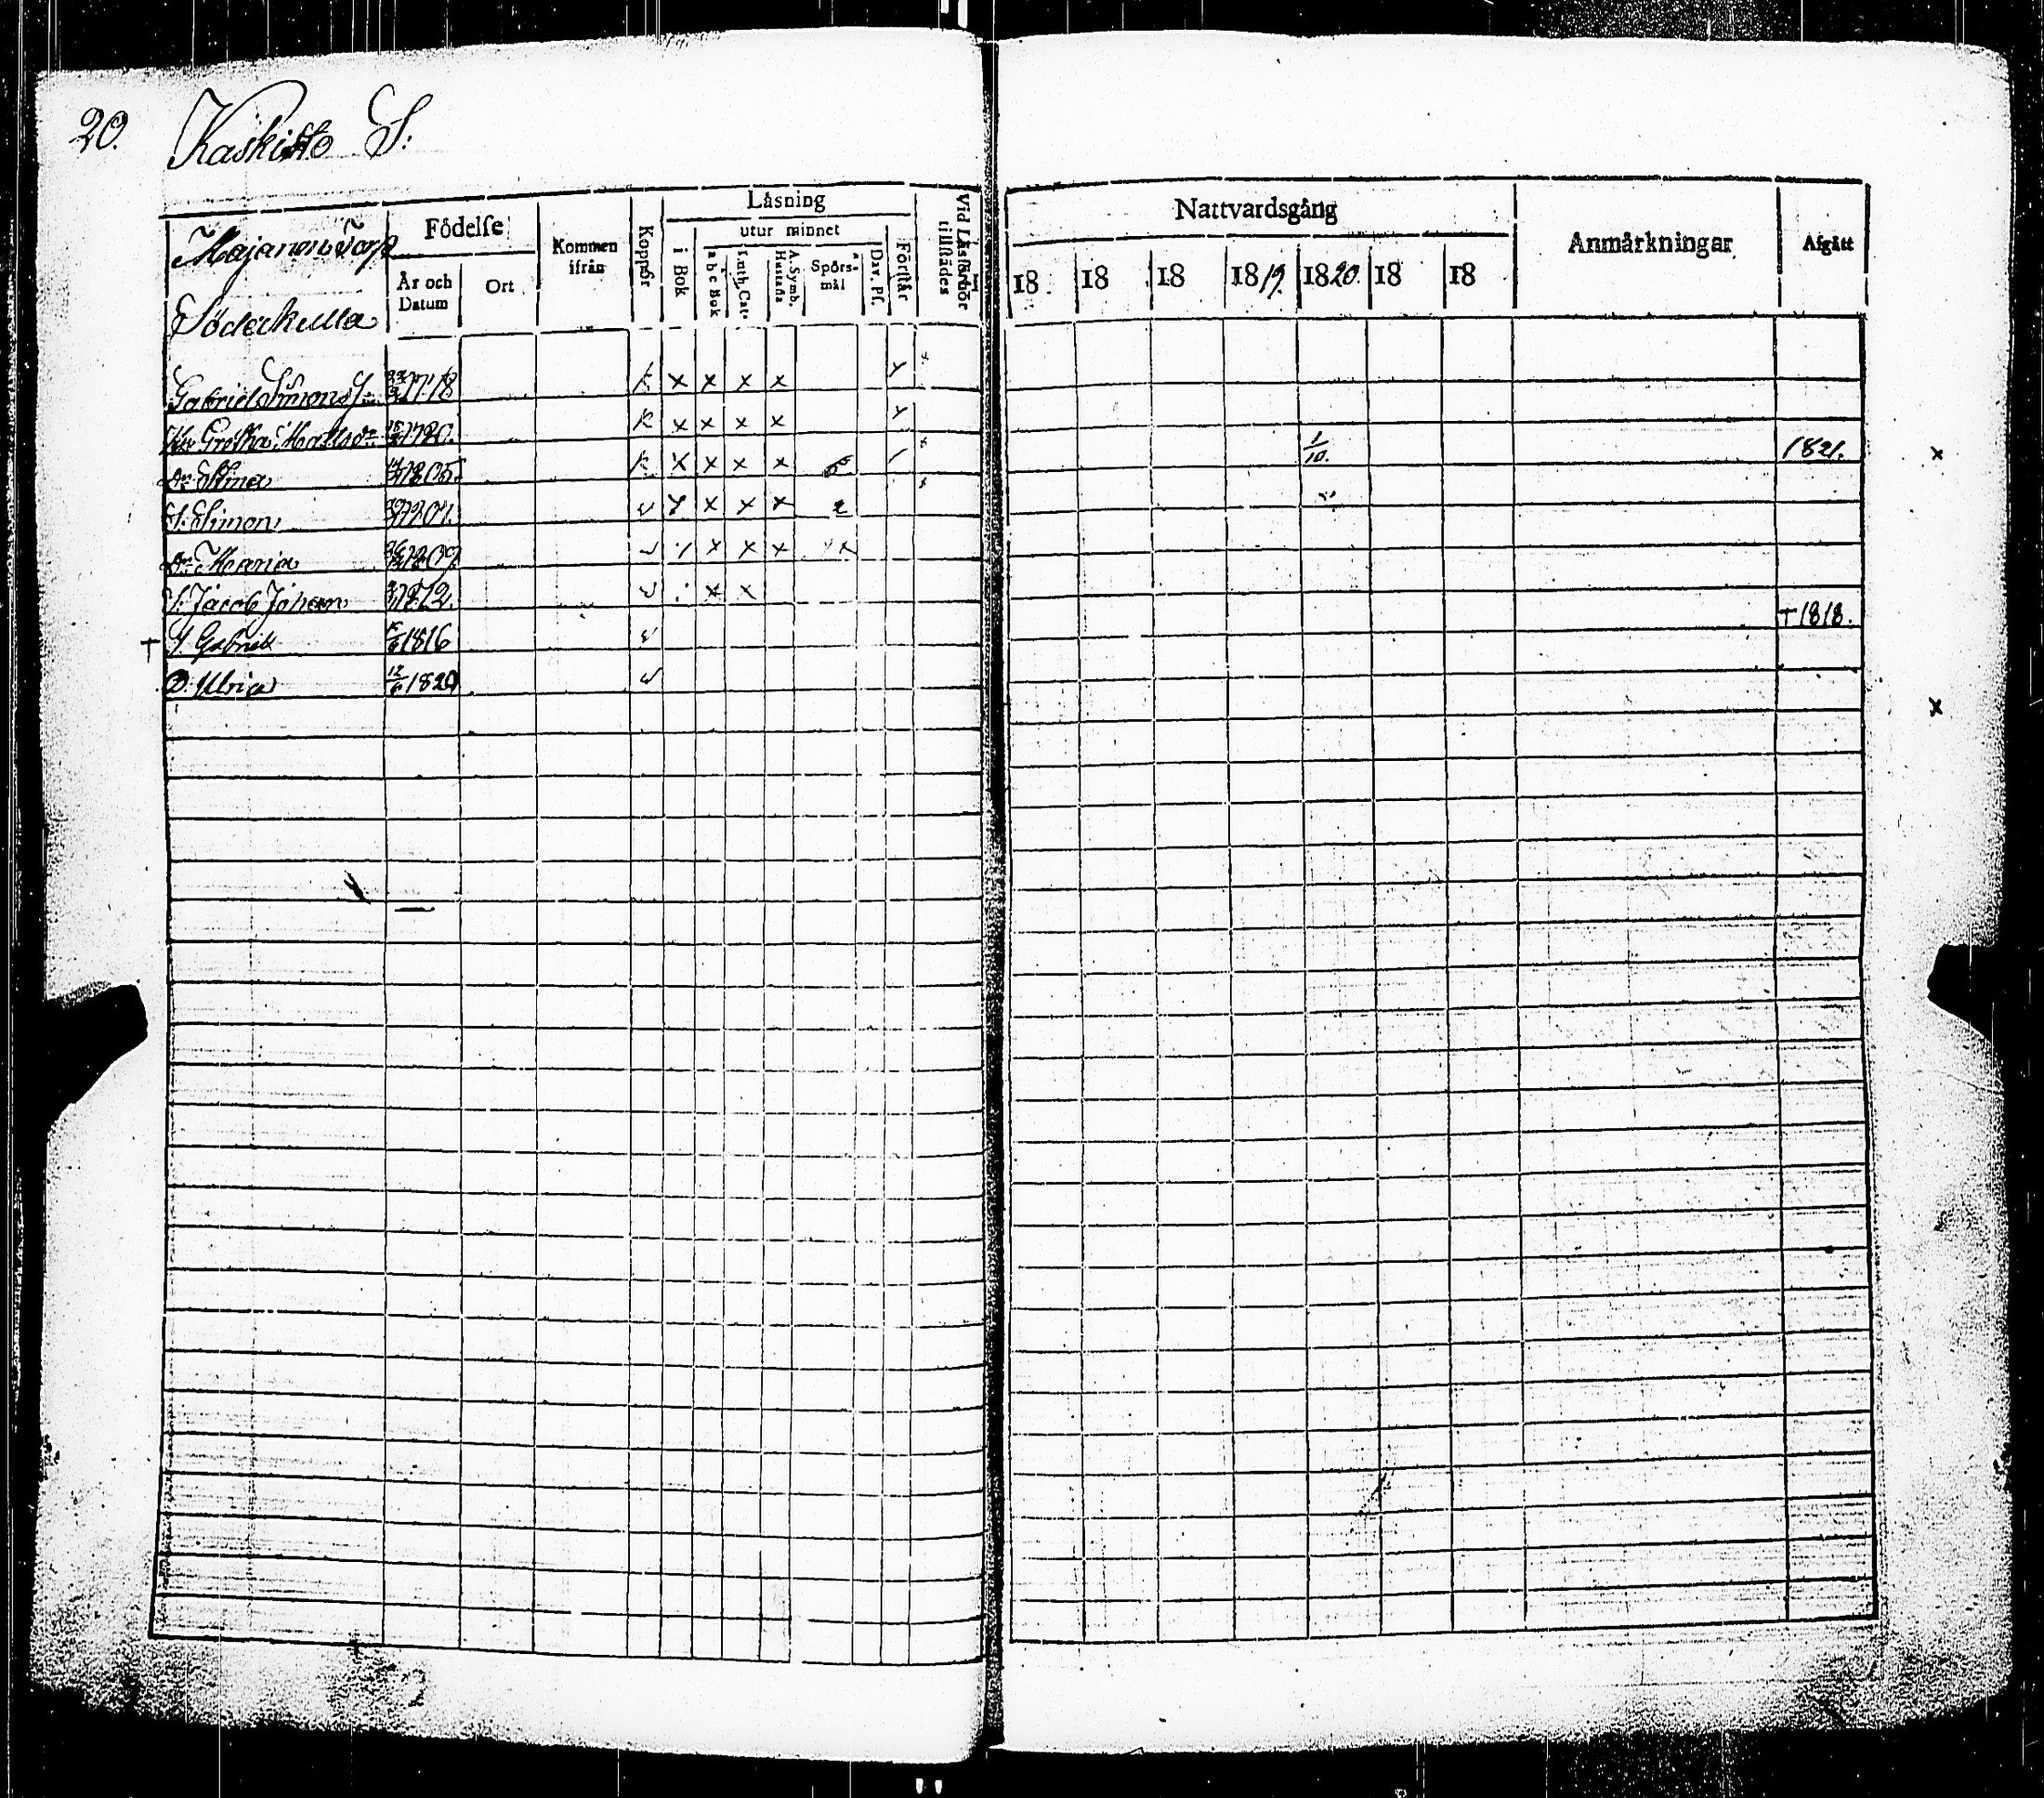 20. Kaskisto S:
Majanen Torp
Söderkulla
Födelse
År och Datum
Ort
Kommen ifrån
Koppor
Läsning
i Bok
utur minnet
a b c Bok
Luth. Cat.
A. Symb. Hustafla
Spörsmål
Dav. Ps.
Förstår
Vid Läsförhör tillstädes
Nattvardsgång
18 18 18 1819. 1820. 18 18
Anmärkningar
Afgått
Gabriel Simons S. 1778 k x x x x
Gretha Matts dr 1780. k x x x x
dr Stina 1805. k x x x x 1/10. 1821. x
S: Simon v x x x 2
dr Maria 1809 v x x x
S: Jacob Johan 1812. v x x
† S. Gabriel 1816 v † 1818.
D. Ulrica 12/6 1820 v
x